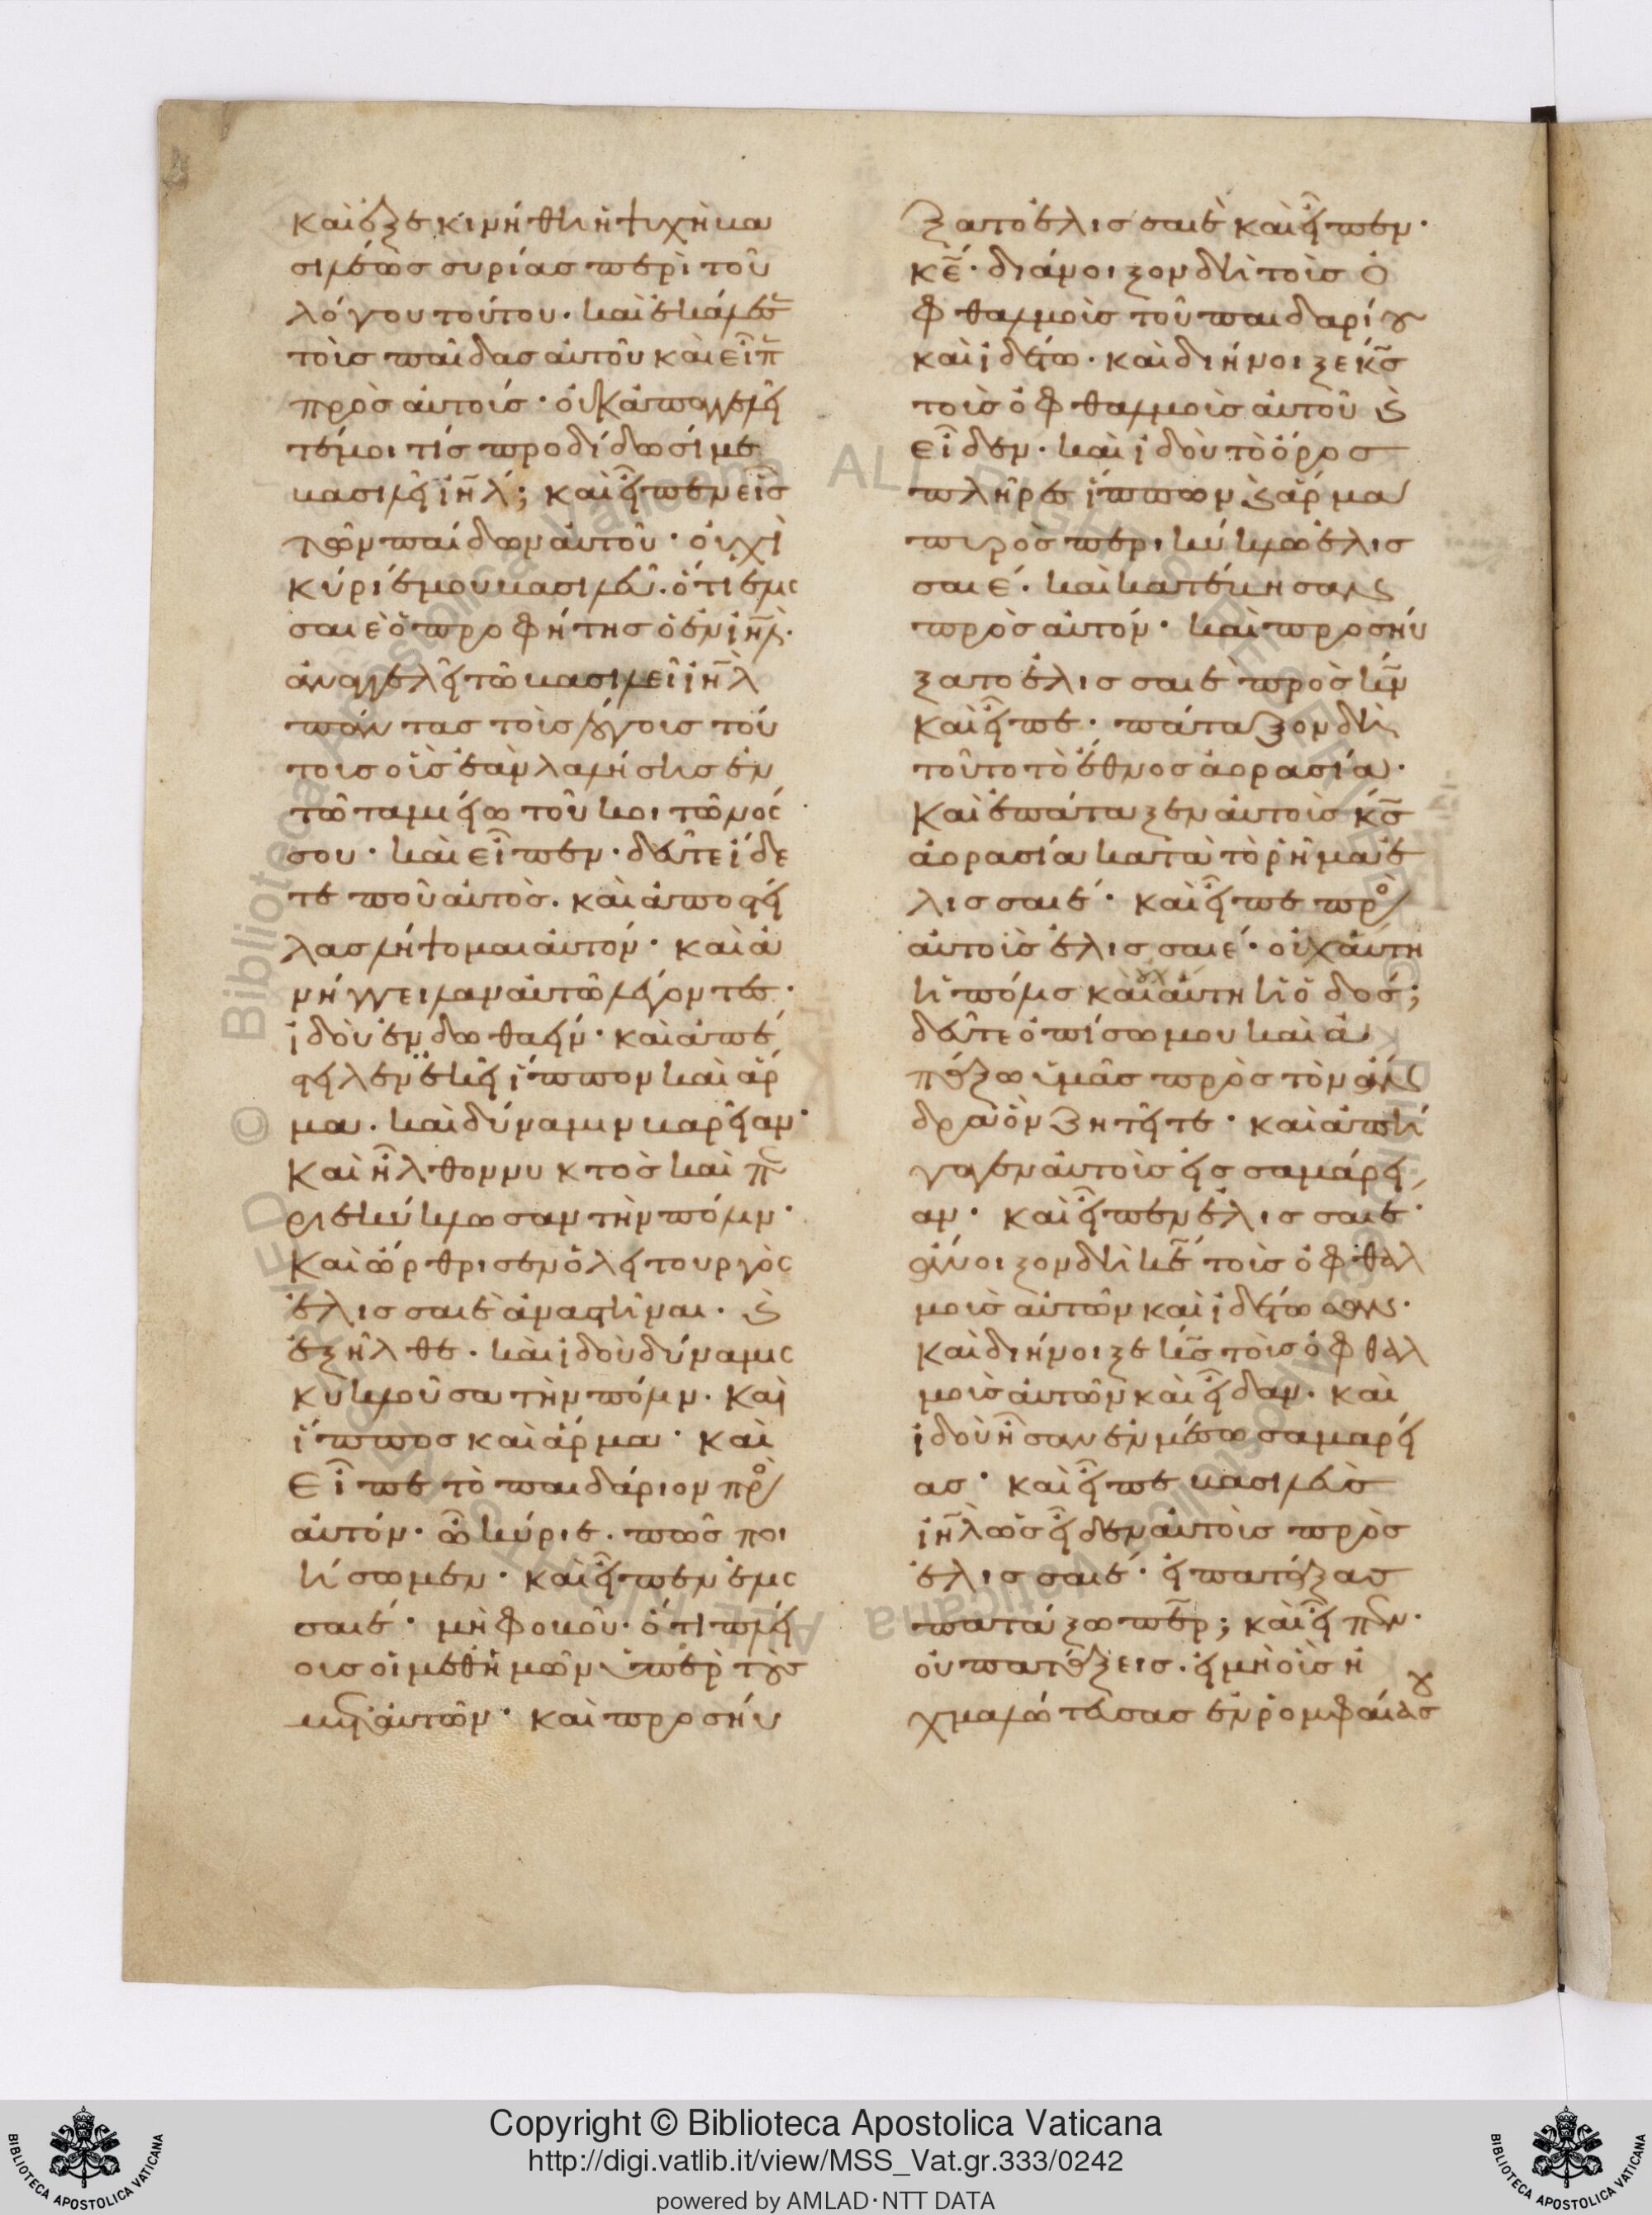 καὶ ἐξεκινήθη ἡ ψυχὴ βα
σιλέως συρίας περὶ τοῦ
λόγου τούτου· καὶ ἐκάλεσ
τοὺς παῖδας αὐτοῦ καὶ εἶπ
πρὸς αὐτούς· οὐκ ἀπαγγελεῖ
τέ μοι τίς προδίδωσί με
βασιλεῖ ἰηλ; καὶ εἶπεν εἷς
τῶν παίδων αὐτοῦ· οὐχὶ
κύριέ μου βασιλεῦ. ὅτι ἐλισ
σαιὲ ὁ προφήτης ὁ ἐν ἰηλ·
ἀναγγελεῖ τῶ βασιλεῖ ἰηλ
πάντας τοὺς λόγους τού
τους οὓς ἐὰν λαλήσης ἐν
τῶ ταμείω τοῦ κοιτῶνός
σου· καὶ εἶπεν· δεῦτε ἴδε
τε ποῦ αὐτός. καὶ ἀποστεί
λας λήψομαι αὐτόν· καὶ ἀ
νήγγειλαν αὐτῶ λέγοντες·
ἰδοὺ ἐν δωθαείν· καὶ ἀπέ
στειλεν ἐκεῖ ἵππον καὶ ἅρ
μα. καὶ δύναμιν βαρεῖαν·
Καὶ ἦλθον νυκτὸς καὶ πε
ριεκύκλωσαν τὴν πόλιν·
Καὶ ὤρθρισεν ὁ λειτουργὸς
ἐλισσαιὲ ἀναστῆναι· ϗ
ἐξῆλθε. καὶ ἰδοὺ δύναμις
κυκλοῦσα τὴν πόλιν. Καὶ
ἵππος καὶ ἅρμα· καὶ
Εἶπε τὸ παιδάριον πρὸ
αὐτόν· ὦ κύριε. πῶς ποι
ήσωμεν· καὶ εἶπεν ἐλισ
σαιέ· μὴ φοβοῦ· ὅτι πλεί
ους οἱ μεθ' ἡμῶν ὑπὲρ τοὺς
μετ' αὐτῶν· καὶ προσηύ
ξατο ἐλισσαιὲ καὶ εἶπεν·
κε· διάνοιξον δὴ τοὺς ὀ
φθαλμοὺς τοῦ παιδαρίου
καὶ ἰδέτω· καὶ διήνοιξε κς
τοὺς ὀφθαλμοὺς αὐτοῦ ϗ
εἶδεν· καὶ ἰδοὺ τὸ ὄρος
πλῆρες ἵππων ϗ ἅρμα
πυρὸς περικύκλω ἐλισ
σαιέ· καὶ κατέβησαν
πρὸς αὐτόν· καὶ προσηύ
ξατο ἐλισσαιὲ πρὸς κν
καὶ εἶπε· πάταξον δὴ
τοῦτο τὸ ἔθνος ἀορασία·
Καὶ ἐπάταξεν αὐτοὺς κς
ἀορασία κατὰ τὸ ῥῆμα ἐ
λισσαιέ· καὶ εἶπε πρὸ
αὐτοὺς ἐλισσαιέ· οὐχ αὕτη
ἡ πόλις καὶ οὐχ αὕτη ἡ ὁδός;
δεῦτε ὀπίσω μου καὶ ἀ
πάξω ὑμᾶς πρὸς τὸν ἄν
δρα ὃν ζητεῖτε· καὶ ἀπή
γαγεν αὐτοὺς εἰς σαμάρει
αν· καὶ εἶπεν ἐλισσαιέ·
ἄνοιξον δὴ κε τοὺς ὀφθαλ
μοὺς αὐτῶν καὶ ἰδέτωσαν·
Καὶ διήνοιξε κς τοὺς ὀφθαλ
μοὺς αὐτῶν καὶ εἶδαν. καὶ
ἰδοὺ ἦσαν ἐν μέσω σαμαρεί
ας· καὶ εἶπε βασιλεὺς
ἰηλ ὡς εἶδεν αὐτοὺς πρὸς
ἐλισσαιέ· εἰ πατάξας
πατάξω περ; καὶ εἶπεν·
οὐ πατάξεις. εἰ μὴ οὓς ἠ
χμαλώτευσας ἐν ῥομφαία σου
Copyright © Biblioteca Apostolica Vaticana
http://digi.vatlib.it/view/MSS_Vat.gr.333/0242
powered by AMLAD·NTT DATA
BIBLIOTECA APOSTOLICA VATICANA
BIBLIOTECA APOSTOLICA VATICANA